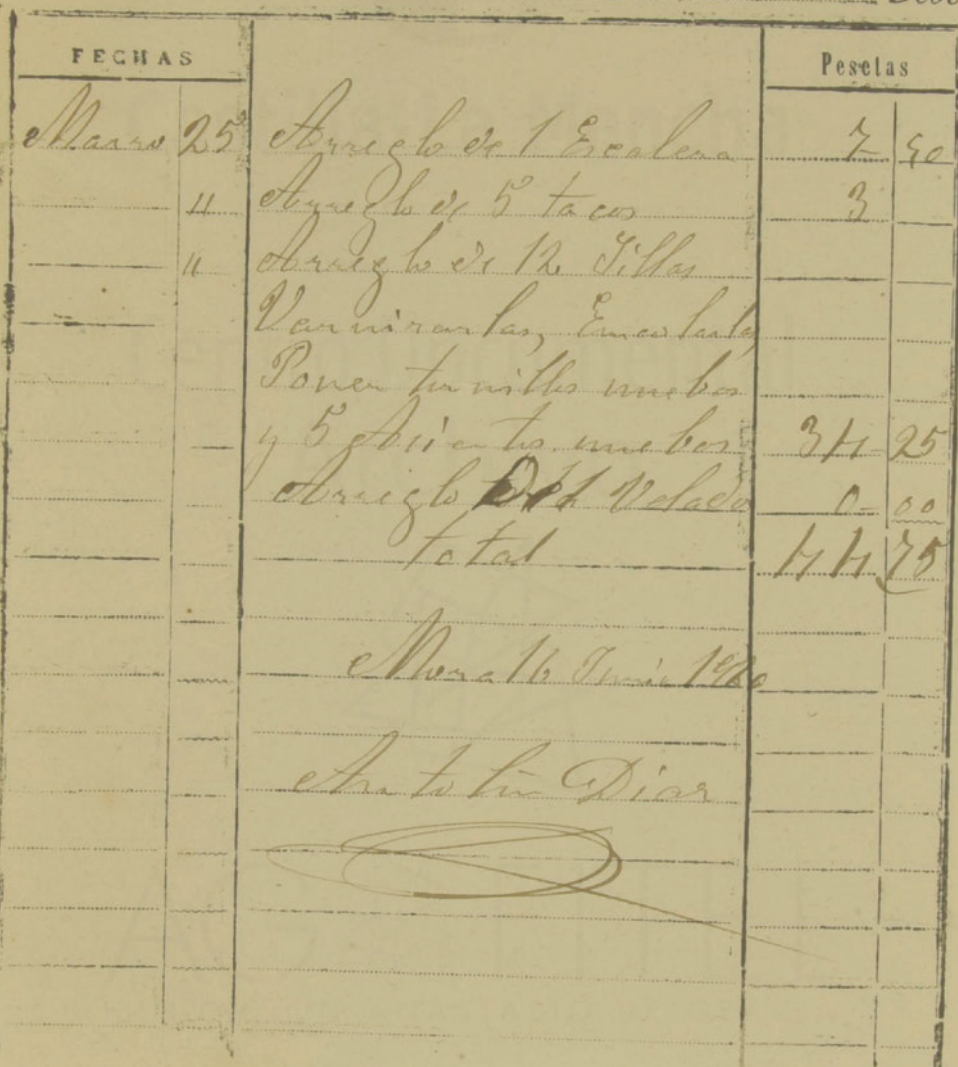 FECHAS Pesetas
Marzo 25 Arreglo de 1 Escalera 7 50
" Arreglo de 5 tacos 3
" Arreglo de 12 Sillas
Varnizarlas, Encolarlas
Poner tornillos nuebos
y 5 Asientos nuebos 34-25
Arreglo De 1 Velado 0-00
total 44 75
Mora 16 Junio
Antolin Diaz